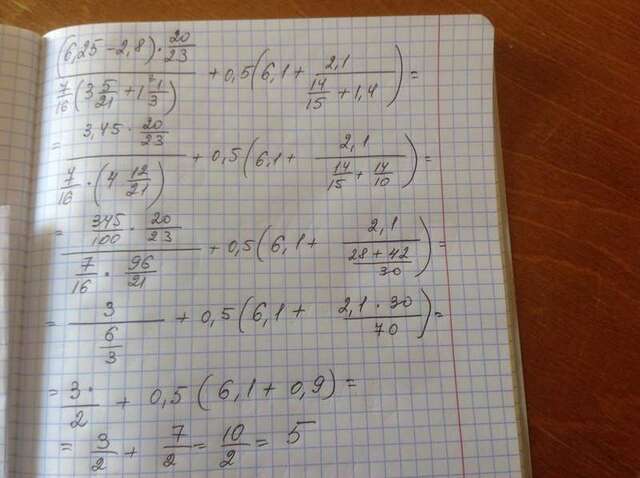 ((6,25 - 2,8) · 20/23) / (7/16 (3 5/21 + 1 1/3)) + 0,5 (6,1 + 2,1 / (14/15 + 1,4)) =
= (3,45 · 20/23) / (7/16 · (4 12/21)) + 0,5 (6,1 + 2,1 / (14/15 + 14/10)) =
= (345/100 · 20/23) / (7/16 · 96/21) + 0,5 (6,1 + 2,1 / ((28 + 42)/30)) =
= 3 / (6/3) + 0,5 (6,1 + (2,1 · 30)/70) =
= 3·/2 + 0,5 (6,1 + 0,9) =
= 3/2 + 7/2 = 10/2 = 5